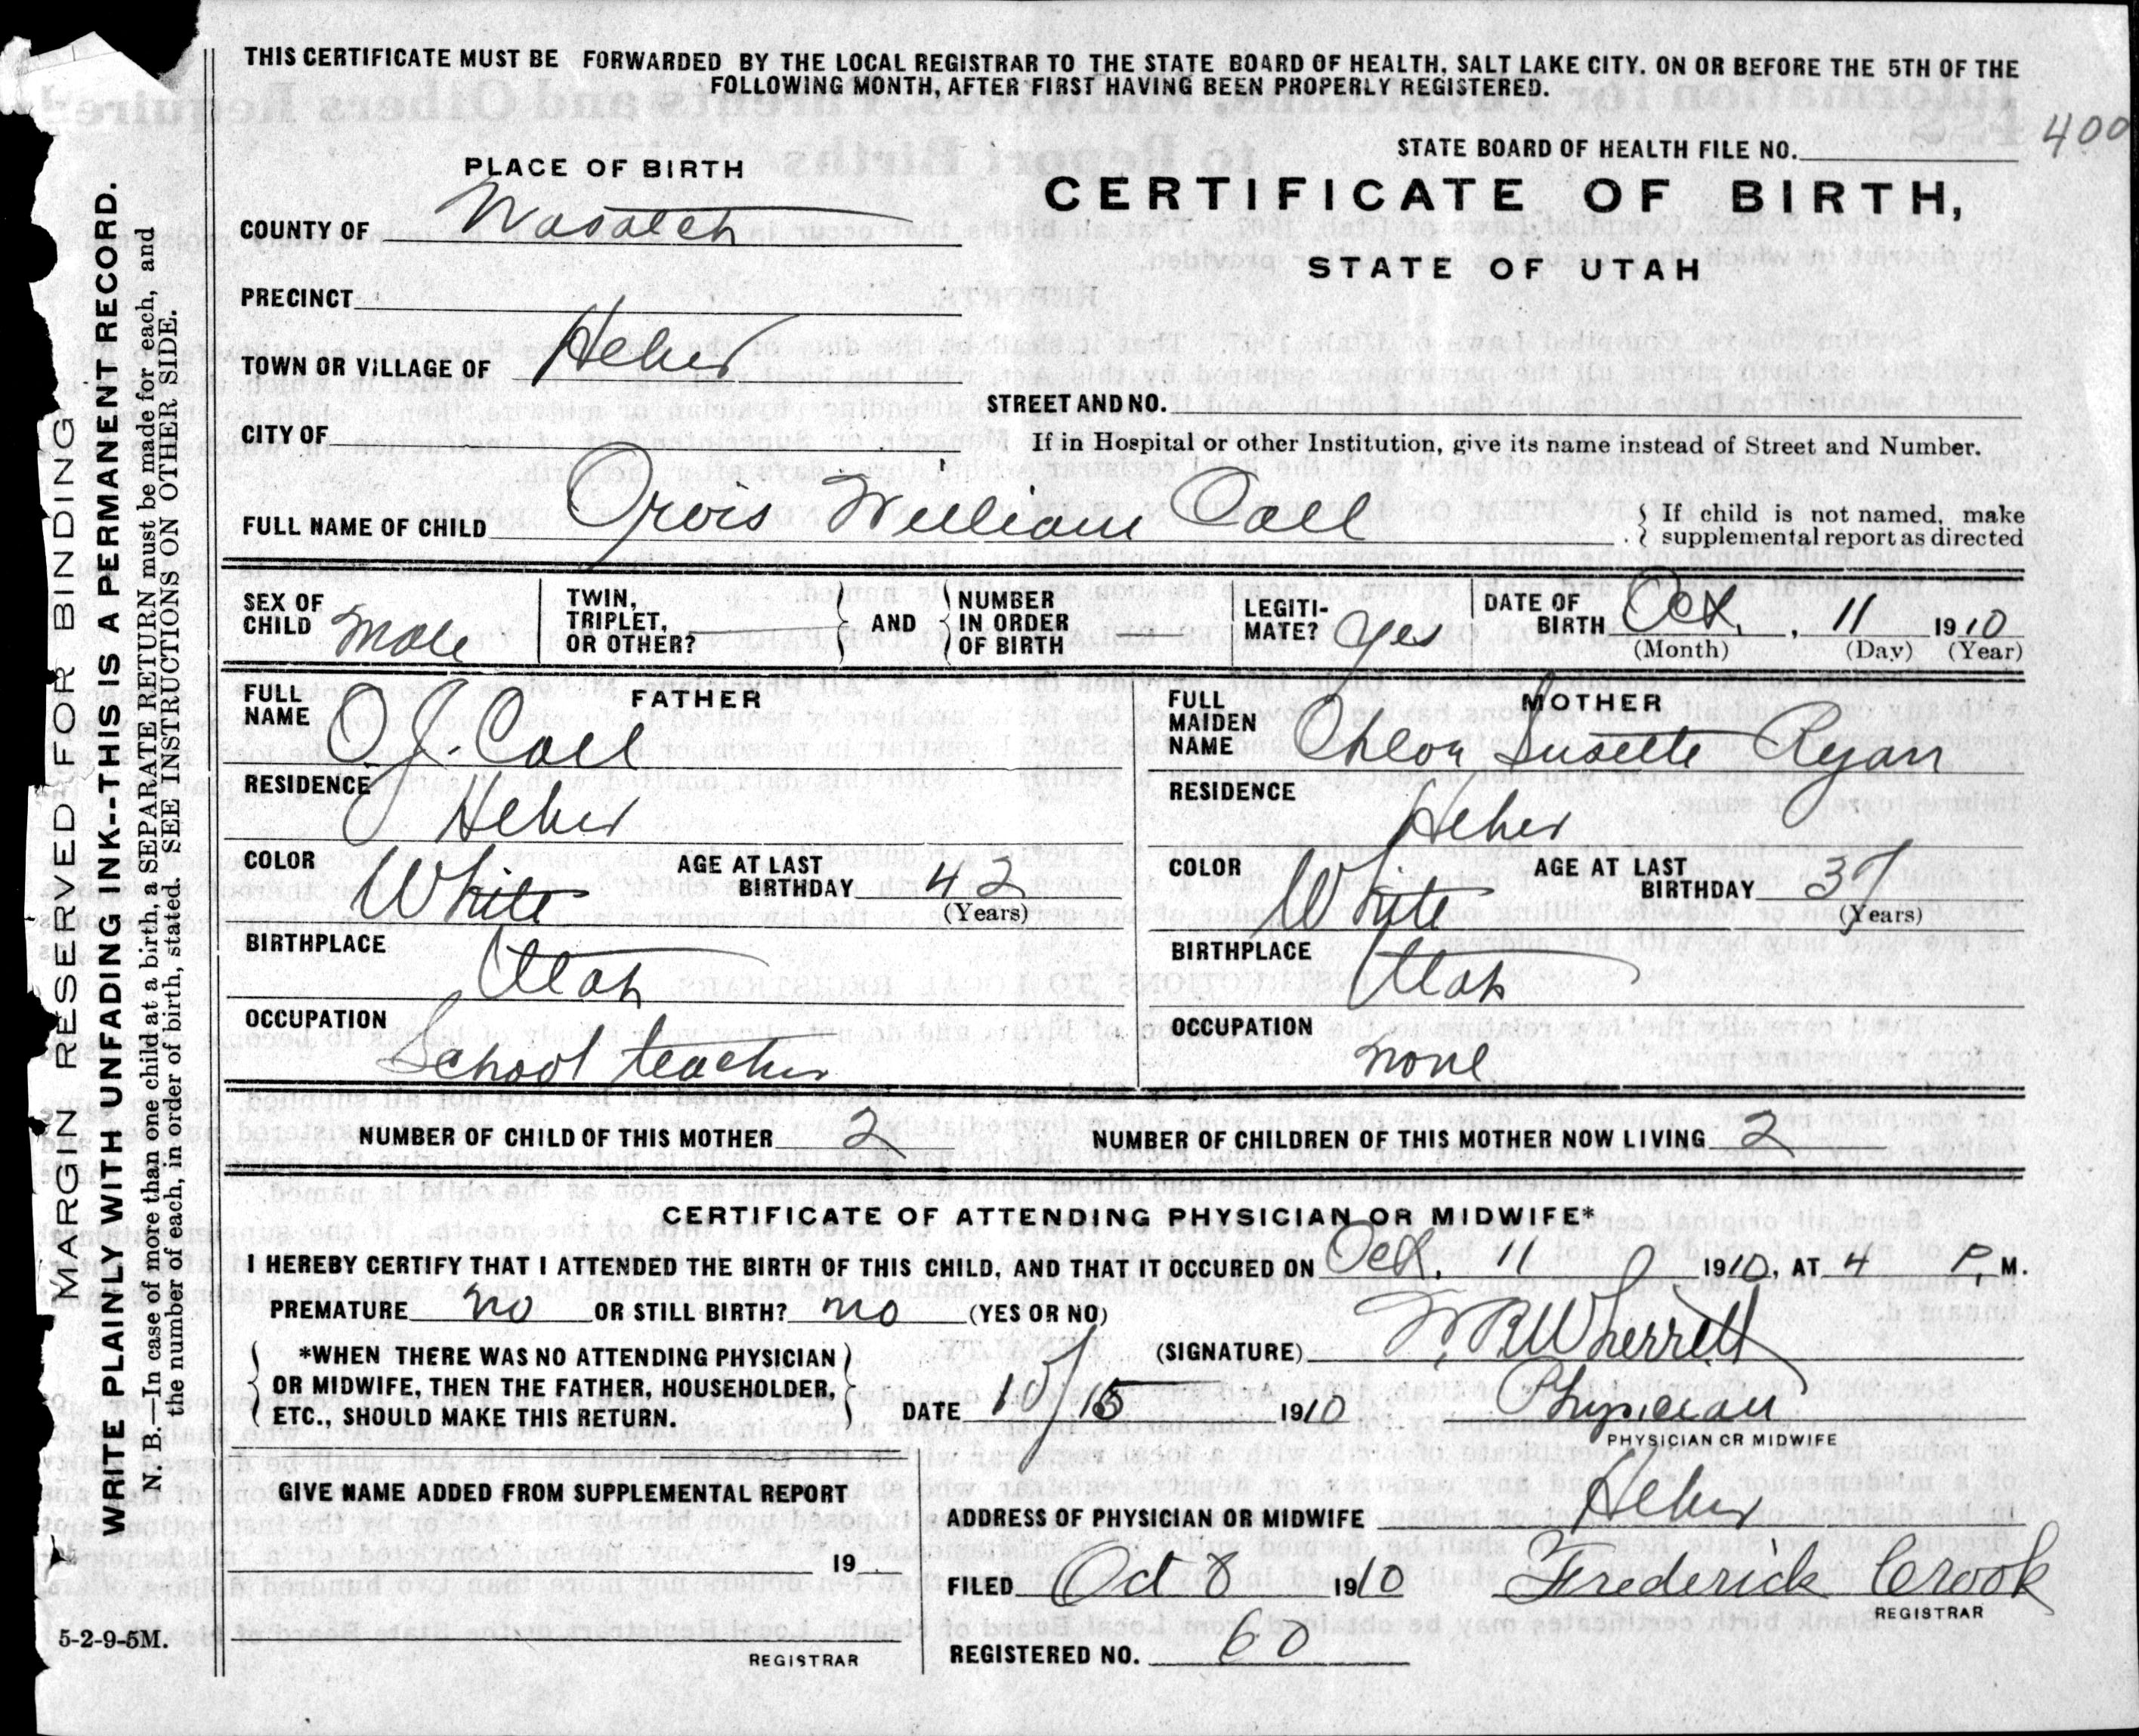 THIS CERTIFICATE MUST BE FORWARDED BY THE LOCAL REGISTRAR TO THE STATE BOARD OF HEALTH, SALT LAKE CITY. ON OR BEFORE THE 5TH OF THE
FOLLOWING MONTH, AFTER FIRST HAVING BEEN PROPERLY REGISTERED.
400
STATE BOARD OF HEALTH FILE NO.
PLACE OF BIRTH
CERTIFICATE OF BIRTH,
STATE OF UTAH
COUNTY OF Wasatch
PRECINCT
TOWN OR VILLAGE OF Heber
STREET AND NO.
CITY OF
If in Hospital or other Institution, give its name instead of Street and Number.
FULL NAME OF CHILD Orvis William Call
If child is not named, make
supplemental report as directed
SEX OF CHILD Male
TWIN, TRIPLET, OR OTHER?
AND
NUMBER IN ORDER OF BIRTH
LEGITI-MATE? yes
DATE OF BIRTH Oct. , 11 1910
(Month) (Day) (Year)
FATHER
FULL NAME O.J. Call
RESIDENCE Heber
COLOR White AGE AT LAST BIRTHDAY 42
(Years)
BIRTHPLACE Utah
OCCUPATION School teacher
MOTHER
FULL MAIDEN NAME Susette Ryan
RESIDENCE Heber
COLOR White AGE AT LAST BIRTHDAY 37
(Years)
BIRTHPLACE Utah
OCCUPATION none
NUMBER OF CHILD OF THIS MOTHER 2 NUMBER OF CHILDREN OF THIS MOTHER NOW LIVING 2
CERTIFICATE OF ATTENDING PHYSICIAN OR MIDWIFE*
I HEREBY CERTIFY THAT I ATTENDED THE BIRTH OF THIS CHILD, AND THAT IT OCCURED ON Oct. 11 1910, AT 4 P. M.
PREMATURE no OR STILL BIRTH? no (YES OR NO)
*WHEN THERE WAS NO ATTENDING PHYSICIAN
OR MIDWIFE, THEN THE FATHER, HOUSEHOLDER,
ETC., SHOULD MAKE THIS RETURN.
(SIGNATURE) Wherrett
DATE 10/15 1910 Physician
PHYSICIAN OR MIDWIFE
GIVE NAME ADDED FROM SUPPLEMENTAL REPORT
19
REGISTRAR
ADDRESS OF PHYSICIAN OR MIDWIFE Heber
FILED Oct 8 1910 Frederick Crook
REGISTRAR
REGISTERED NO. 60
5-2-9-5M.
MARGIN RESERVED FOR BINDING
WRITE PLAINLY WITH UNFADING INK--THIS IS A PERMANENT RECORD.
N. B.—In case of more than one child at a birth, a SEPARATE RETURN must be made for each, and
the number of each, in order of birth, stated. SEE INSTRUCTIONS ON OTHER SIDE.